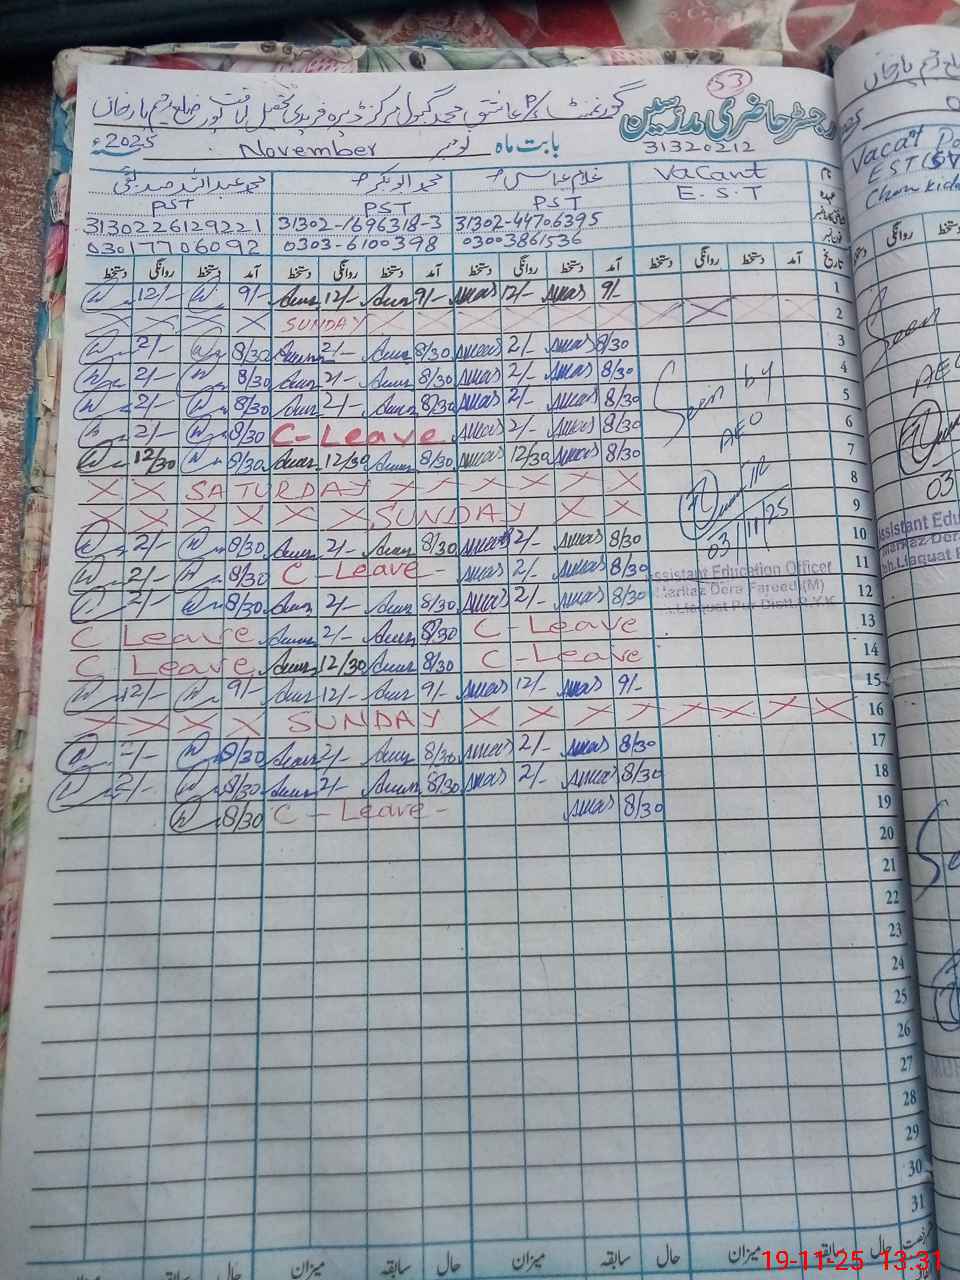 53
رجسٹر حاضری مدرسین
گورنمنٹ P/S عاشق محمد گبول مرکز ڈیرہ فریدی تحصیل لیاقت پور ضلع رحیم یار خاں
31320212
بابت ماہ نومبر November سنہ 2025ء
نام Vacant غلام عباس محمد ابوبکر محمد عبداللہ صدیقی
عہدہ E.S.T PST PST PST
31302-44706395 31302-1696318-3 3130226129221
03003861536 0303-6100398 03017706092
تاریخ آمد دستخط روانگی دستخط آمد دستخط روانگی دستخط آمد دستخط روانگی دستخط آمد دستخط روانگی دستخط
12/- 9/- 12/- 9/- 12/- 9/- 1
X X X X SUNDAY X X X X X X X X X X 2
2/- 8/30 2/- 8/30 2/- 8/30 3
2/- 8/30 2/- 8/30 2/- 8/30 4
2/- 8/30 2/- 8/30 2/- 8/30 5
2/- 8/30 C-Leave 2/- 8/30 6
12/30 8/30 12/30 8/30 12/30 8/30 7
X X SATURDAY X X X X X X 8
X X X X X X SUNDAY X X 9
2/- 8/30 2/- 8/30 2/- 8/30 10
2/- 8/30 C-Leave- 2/- 8/30 11
2/- 8/30 2/- 8/30 2/- 8/30 12
C Leave 2/- 8/30 C-Leave 13
C Leave 12/30 8/30 C-Leave 14
12/- 9/- 12/- 9/- 12/- 9/- 15
X X X X SUNDAY X X X X X X X X 16
2/- 8/30 2/- 8/30 2/- 8/30 17
2/- 8/30 2/- 8/30 2/- 8/30 18
8/30 C-Leave- 8/30 19
20
21
22
23
24
25
26
27
28
29
30
31
Seen by
AEO
03/11/25
Assistant Education Officer
Markaz Dera Fareed (M)
حال سابقہ میزان حال سابقہ میزان حال سابقہ میزان حال سابقہ میزان
Vacant
EST
Chowkidar
روانگی
Seen
AEO
03
Assistant Edu
Markaz Dera
19-11-25 13:31